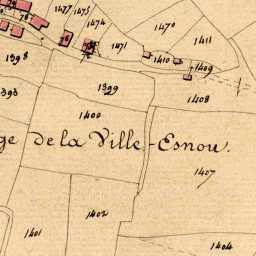 1477
1475
1474
1470
1411
78
78
1471
1410
1409
1398
1399
1408
1393
1400
ge de la Ville-Esnou.
1407
1402
1401
1404